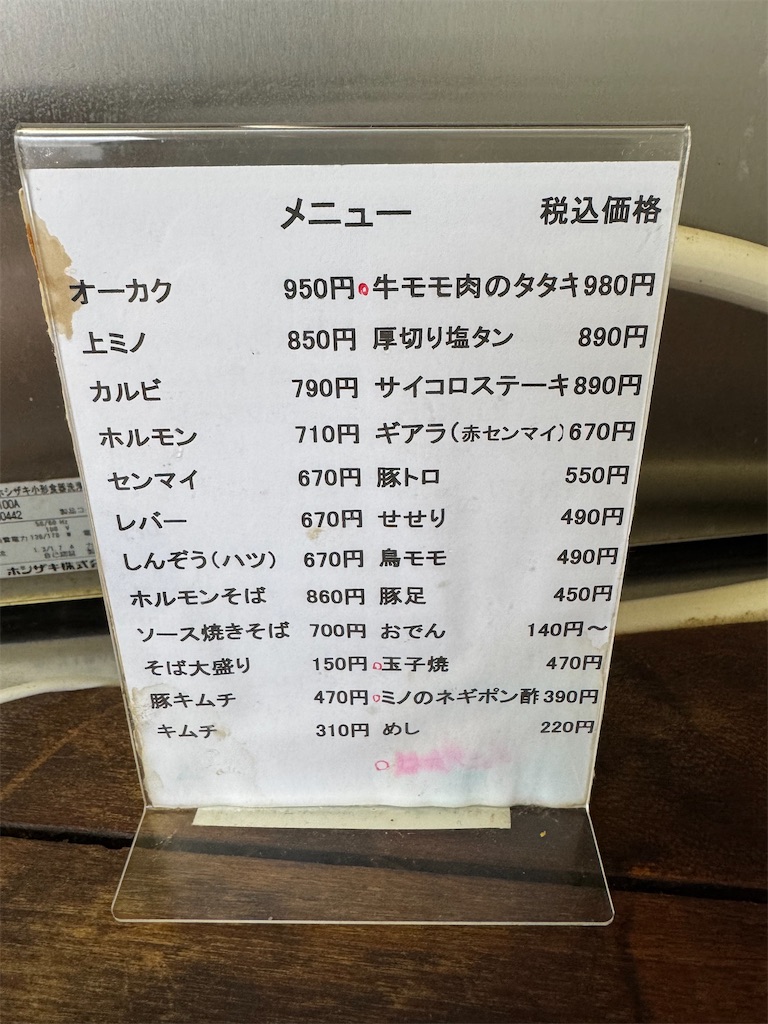 メニュー 税込価格
オーカク 950円 牛モモ肉のタタキ 980円
上ミノ 850円 厚切り塩タン 890円
カルビ 790円 サイコロステーキ 890円
ホルモン 710円 ギアラ(赤センマイ) 670円
センマイ 670円 豚トロ 550円
レバー 670円 せせり 490円
しんぞう(ハツ) 670円 鳥モモ 490円
ホルモンそば 860円 豚足 450円
ソース焼きそば 700円 おでん 140円~
そば大盛り 150円 玉子焼 470円
豚キムチ 470円 ミノのネギポン酢 390円
キムチ 310円 めし 220円
ホシザキ小形食器洗浄
100A
0442 製品コ
50/60 Hz
100 V
自己認証
ホシザキ株式会